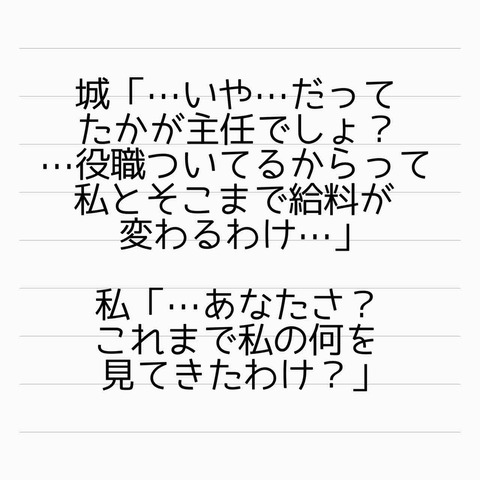 城「…いや…だって
たかが主任でしょ？
…役職ついてるからって
私とそこまで給料が
変わるわけ…」
私「…あなたさ？
これまで私の何を
見てきたわけ？」